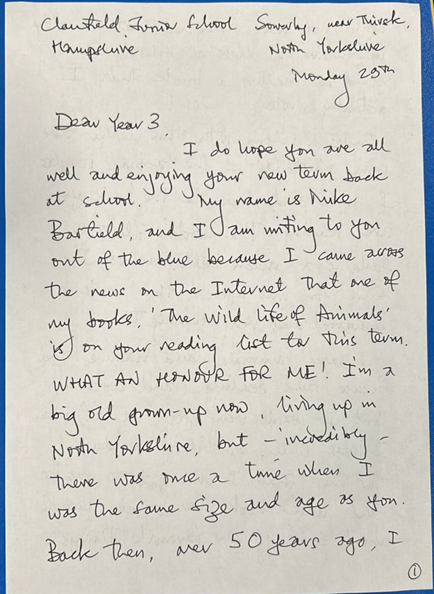 Clanfield Junior School Sowerby, near Thirsk,
Hampshire North Yorkshire
Monday 29th
Dear Year 3,
I do hope you are all
well and enjoying your new term back
at school. My name is Mike
Barfield, and I am writing to you
out of the blue because I came across
the news on the Internet that one of
my books, 'The Wild Life of Animals'
is on your reading list for this term.
WHAT AN HONOUR FOR ME! I'm a
big old grown-up now, living up in
North Yorkshire, but - incredibly -
there was once a time when I
was the same size and age as you.
Back then, over 50 years ago, I
1